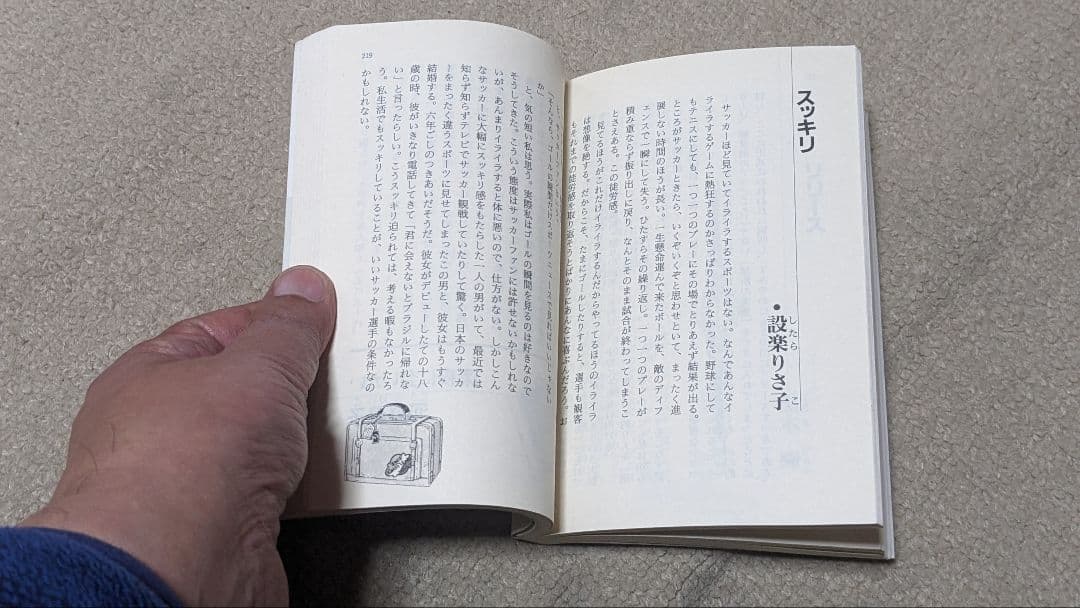 スッキリ
・設楽りさ子
したら こ
サッカーほど見ていてイライラするスポーツはない。なんであんなイ
ライラするゲームに熱狂するのかさっぱりわからなかった。野球にして
もテニスにしても、一つ一つのプレーにその場でとりあえず結果が出る。
ところがサッカーときたら、いくぞいくぞと思わせといて、まったく進
展しない時間のほうが長い。一生懸命運んで来たボールを、敵のディフ
ェンスで一瞬にして失う。ひたすらその繰り返し。一つ一つのプレーが
積み重ならず振り出しに戻り、なんとそのまま試合が終わってしまうこ
とさえある。この徒労感。
見てるほうがこれだけイライラするんだからやってるほうのイライラ
は想像を絶する。だからこそ、たまにゴールしたりすると、選手も観客
もそれまでの徒労感を取り返そうとばかりにあんなに喜ぶんだろう。
か」
と、気の短い私は思う。実際私はゴールの瞬間を見るのは好きなので
そうしてきた。こういう態度はサッカーファンには許せないかもしれな
いが、あんまりイライラすると体に悪いので、仕方がない。しかしこん
なサッカーに大幅にスッキリ感をもたらした一人の男がいて、最近では
知らず知らずテレビでサッカー観戦していたりして驚く。日本のサッカ
ーをまったく違うスポーツに見せてしまったこの男と、彼女はもうすぐ
結婚する。六年ごしのつきあいだそうだ。彼女がデビューしたての十八
歳の時、彼がいきなり電話してきて「君に会えないとブラジルに帰れな
い」と言ったらしい。こうスッキリ迫られては、考える暇もなかったろ
う。私生活でもスッキリしていることが、いいサッカー選手の条件なの
かもしれない。
219